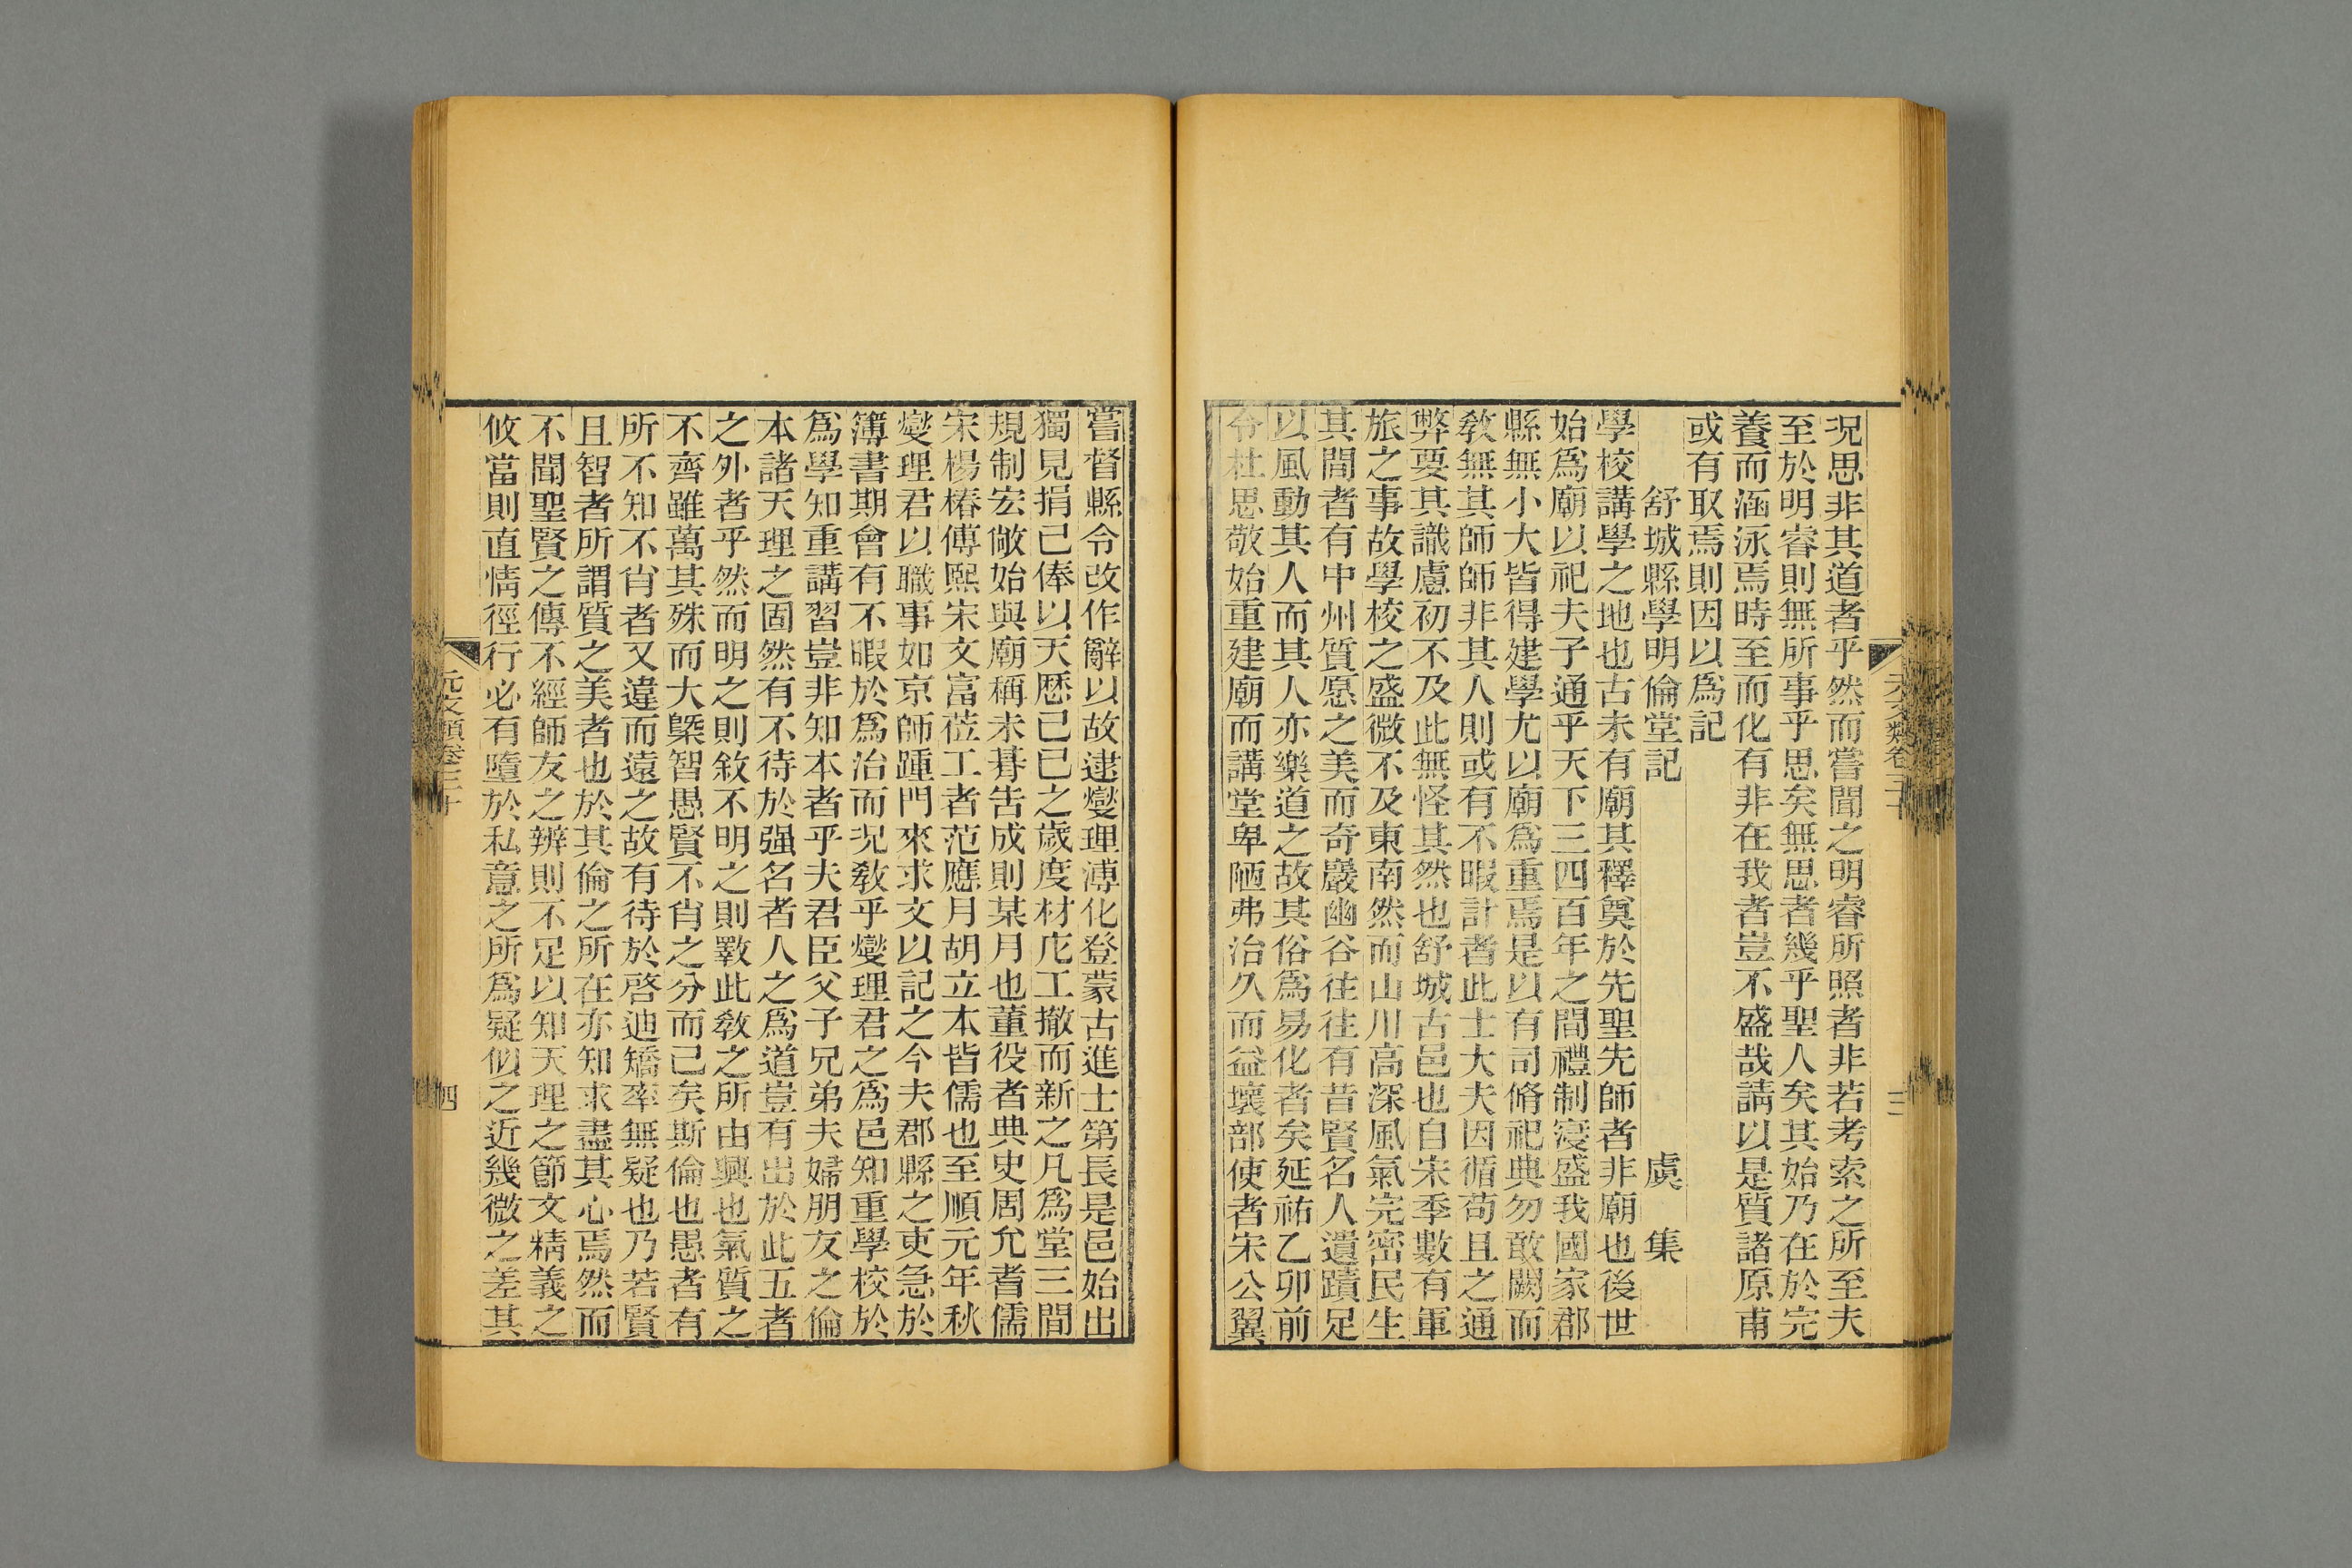 况思非其道者乎然而嘗聞之明睿所照者非若考索之所至夫
至於明睿則無所事乎思矣無思者幾乎聖人矣其始乃在於完
養而涵泳焉時至而化有非在我者豈不盛哉請以是質諸原甫
或有取焉則因以爲記
舒城縣學明倫堂記 虞集
學校講學之地也古未有廟其釋奠於先聖先師者非廟也後世
始爲廟以祀夫子通乎天下三四百年之間禮制寖盛我國家郡
縣無小大皆得建學尤以廟爲重焉是以有司脩祀典勿敢闕而
敎無其師師非其人則或有不暇計者此士大夫因循苟且之通
弊要其識慮初不及此無怪其然也舒城古邑也自宋季數有軍
旅之事故學校之盛微不及東南然而山川高深風氣完密民生
其間者有中州質愿之美而奇巖幽谷往往有昔賢名人遺蹟足
以風動其人而其人亦樂道之故其俗爲易化者矣延祐乙卯前
令杜思敬始重建廟而講堂卑陋弗治久而益壞部使者宋公翼
嘗督縣令改作辭以故逮燮理溥化登蒙古進士第長是邑始出
獨見捐己俸以天歷己巳之歲度材庀工撤而新之凡爲堂三間
規制宏敞始與廟稱未朞告成則某月也董役者典史周允者儒
宋楊椿傅熙宋文富莅工者范應月胡立本皆儒也至順元年秋
燮理君以職事如京師踵門來求文以記之今夫郡縣之吏急於
簿書期會有不暇於爲治而況敎乎燮理君之爲邑知重學校於
爲學知重講習豈非知本者乎夫君臣父子兄弟夫婦朋友之倫
本諸天理之固然有不待於强名者人之爲道豈有出於此五者
之外者乎然而明之則敘不明之則斁此敎之所由興也氣質之
不齊雖萬其殊而大槩智愚賢不肖之分而已矣斯倫也愚者有
所不知不肖者又違而遠之故有待於啓迪矯率無疑也乃若賢
且智者所謂質之美者也於其倫之所在亦知求盡其心焉然而
不聞聖賢之傳不經師友之辨則不足以知天理之節文精義之
攸當則直情徑行必有墮於私意之所爲疑似之近幾微之差其
元文類卷三十
四